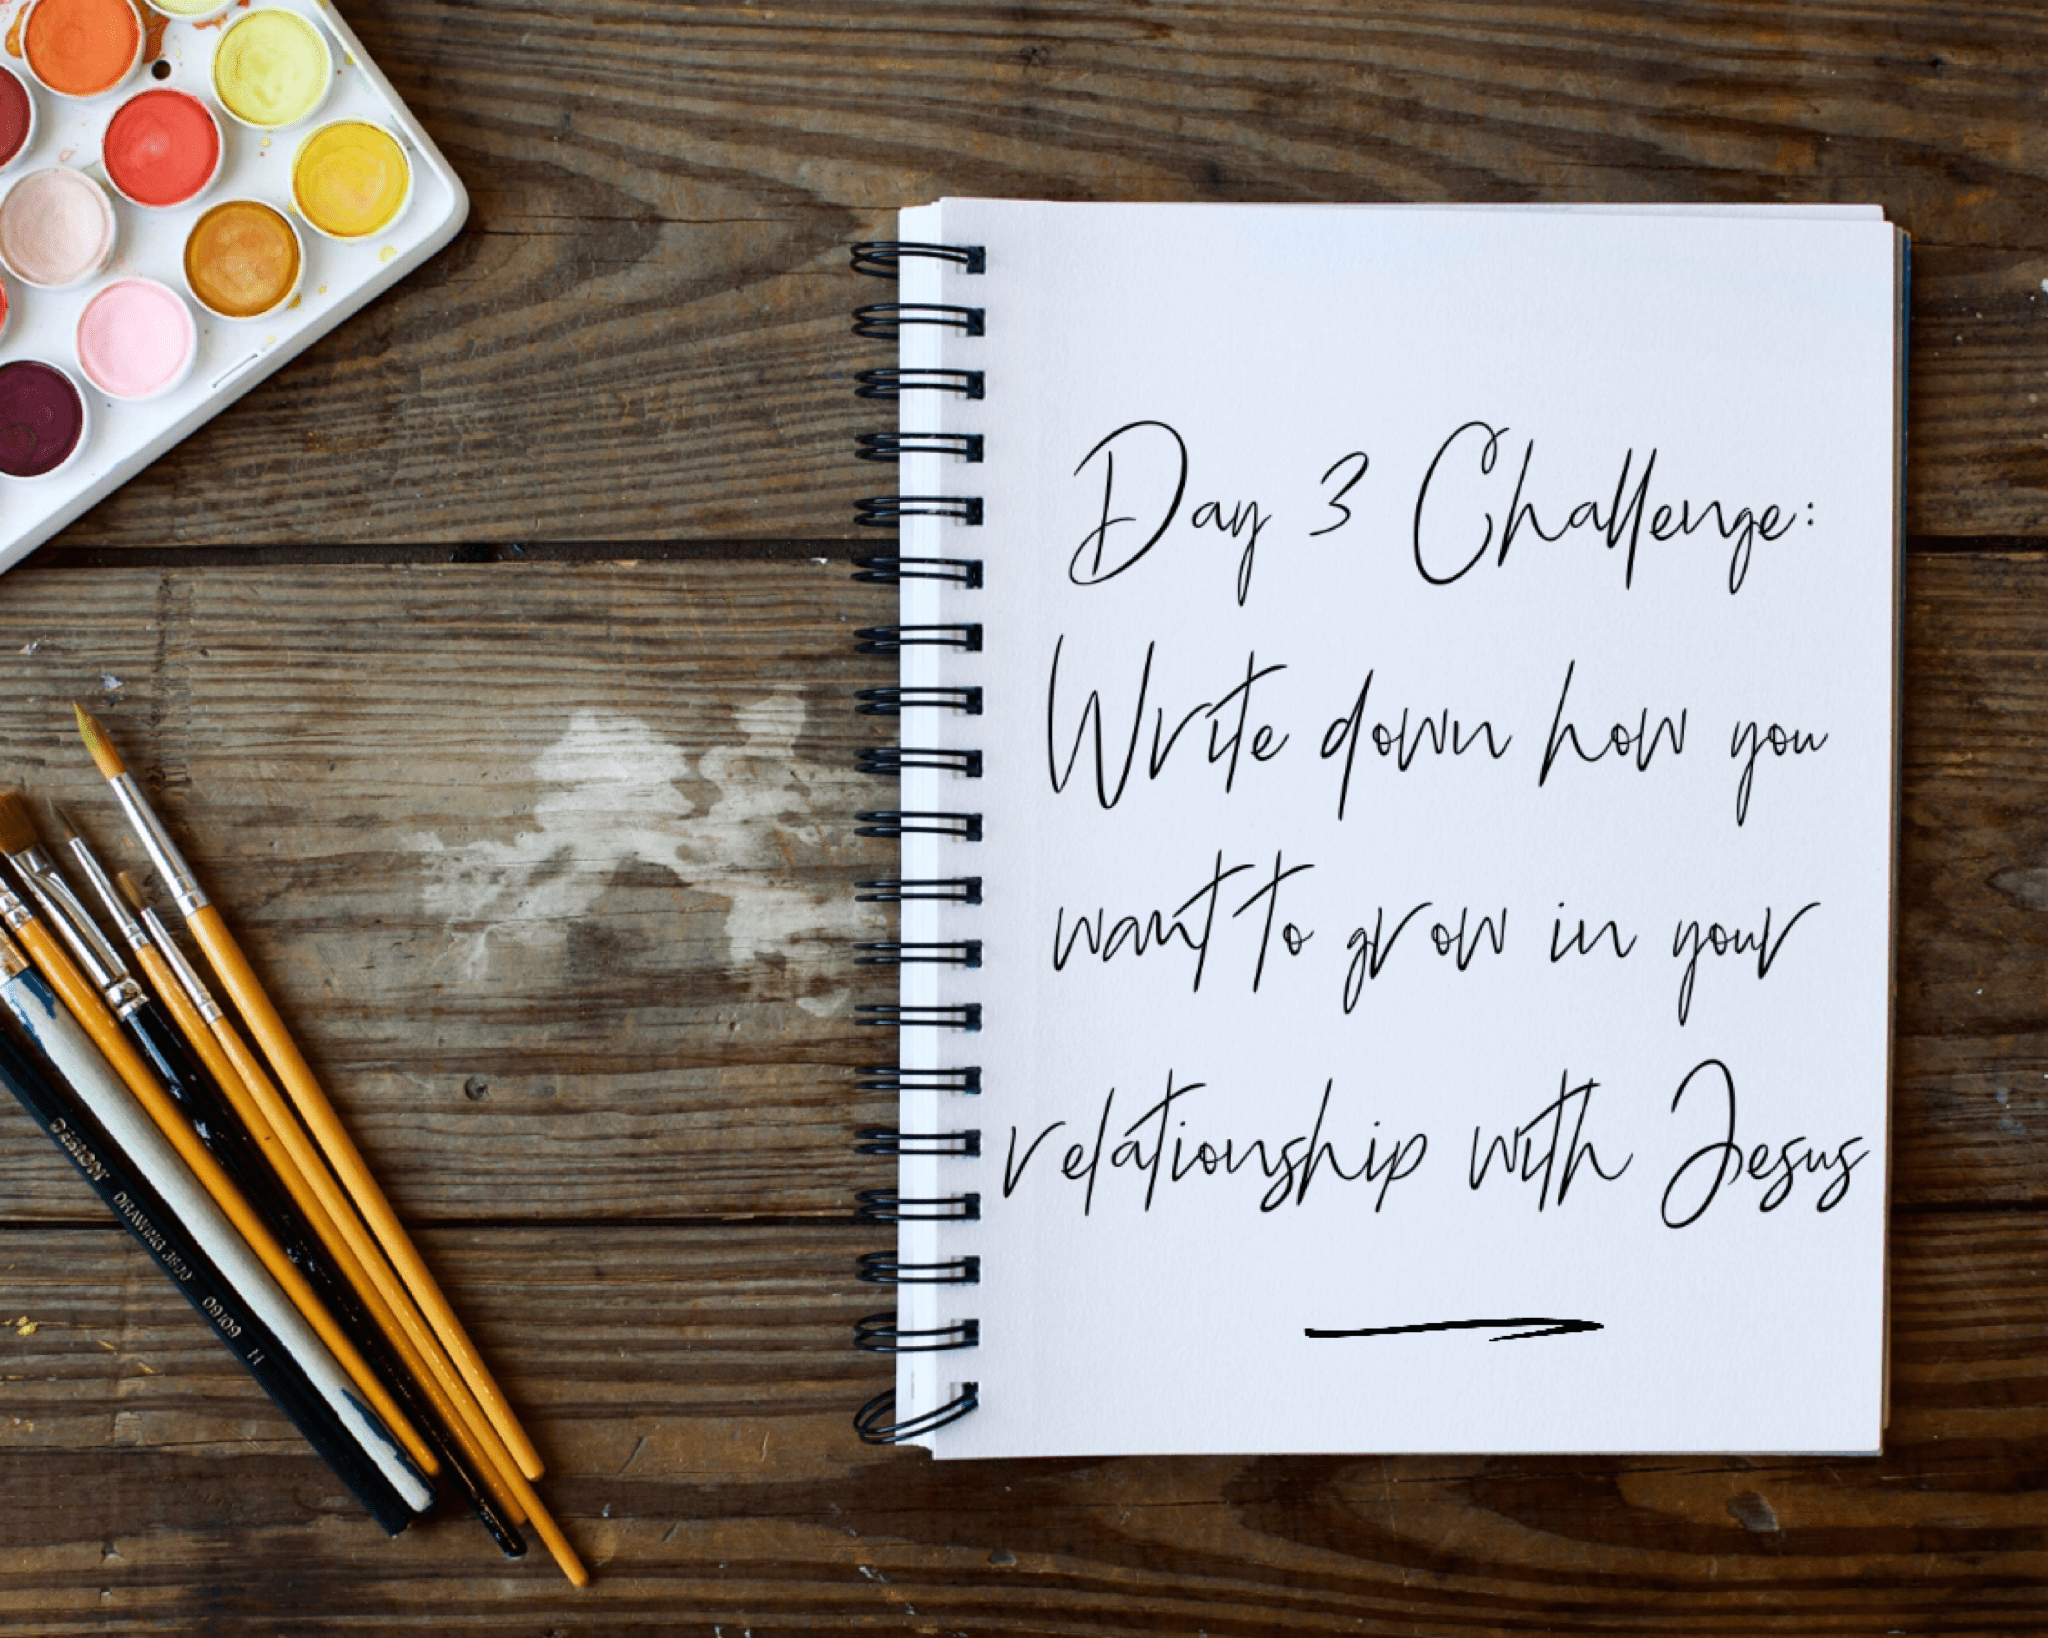 Day 3 Challenge:
Write down how you
want to grow in your
relationship with Jesus
DESIGN DRAWING 3800 09160 H